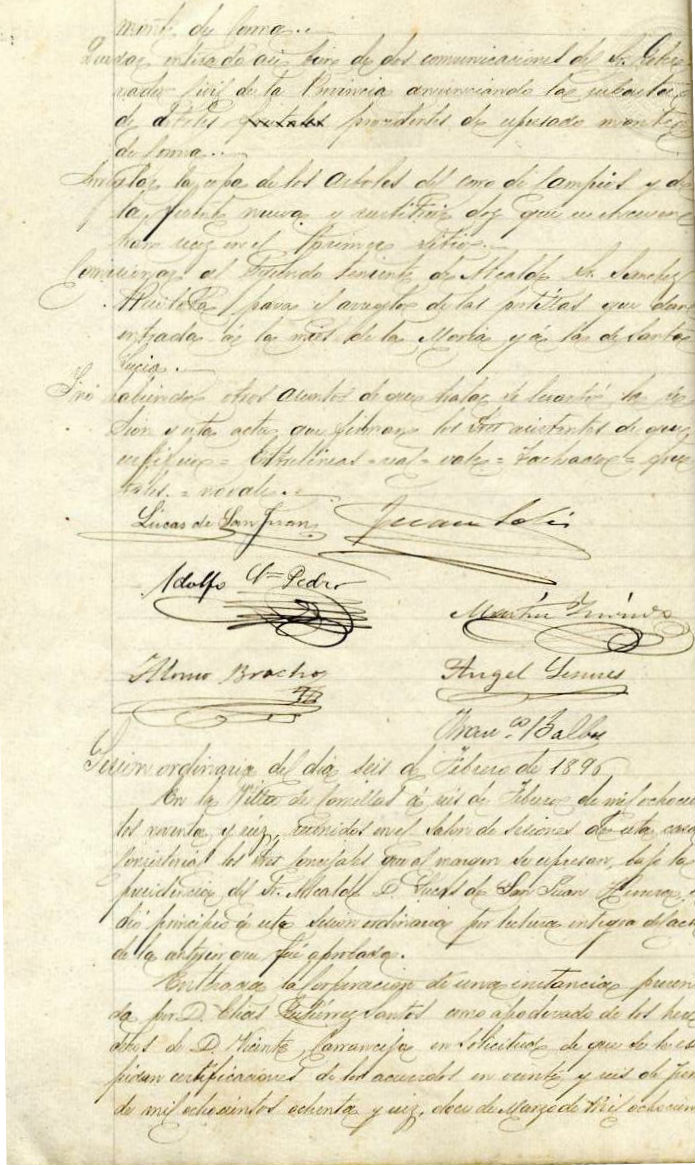 monte de Corona.
Quedar enterado asi bien de dos comunicaciones del Sr. Gober
nador civil de la Provincia anunciando las subastas
de árboles procedentes de espresado monte
de Corona.
Arreglar la copa de los arboles del coro de Campios y de
la fuente nueva y sustituir dos que se encuen
tran en el primer sitio.
Comisionar al Segundo teniente de Alcalde Sr. Sanchez
para el arreglo de las portillas que dan
entrada á la mies de la Moria y á la de Santa
Lucia.
Y no habiendo otros asuntos de que tratar se levantó la se
sion y esta acta que firman los Sres asistentes de que
certifico = Entrelineas = vale = Tachado =
= no vale.
Lucas de San Juan Juan
Adolfo Gª Pedro
Martin
Alonso Bracho
Angel
Franco Balbs
Sesion ordinaria del dia seis de Febrero de 1896
En la Villa de Comillas á seis de Febrero de mil ochocien
tos noventa y seis, reunidos en el salon de sesiones de esta casa
Consistorial los Sres Concejales que al margen se espresan, bajo la
presidencia del Sr. Alcalde D. Lucas de San Juan Herrera, se
dió principio á esta sesion ordinaria por lectura integra del acta
de la anterior que fué aprobada.
Enterada la Corporacion de una instancia presenta
da por D. Elias Gutierrez Santos como apoderado de los here
deros de D. Vicente Carranceja en solicitud de que se le es
pidan certificaciones de los acuerdos en veinte y seis de
de mil ochocientos ochenta y seis, doce de Marzo de Mil ochocien